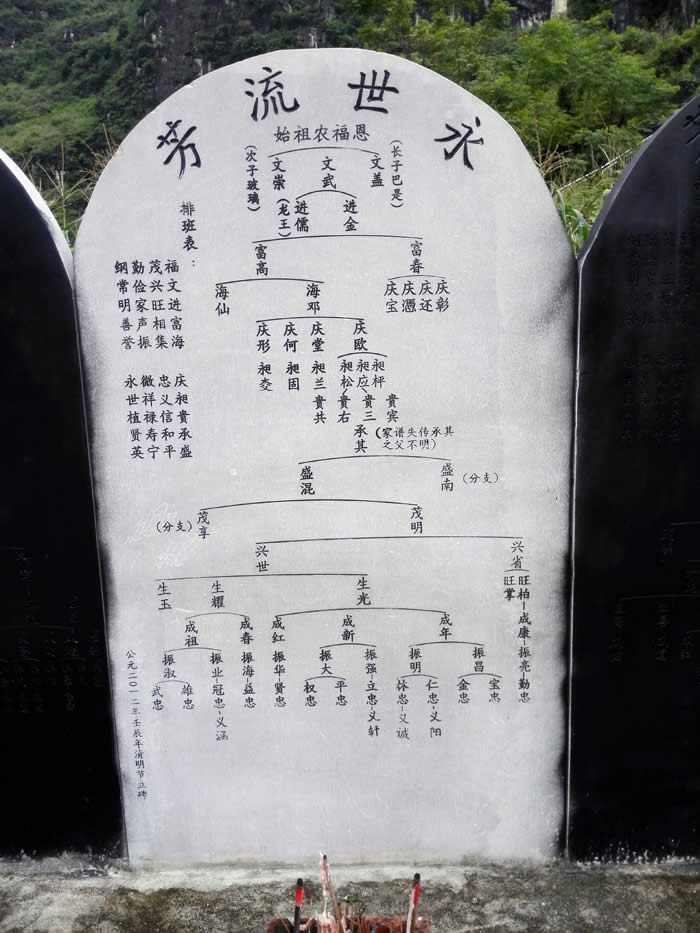 永世流芳
始祖农福恩
(长子巴是)
文盖
文武
文崇
(次子玻璃)
进金
进儒
(龙王)
排班表：
福文进富海
茂兴旺相集
勤俭家声振
纲常明善誉
庆昶貴承盛
忠义信和平
微祥禄寿宁
永世植贤英
富春
富高
庆彰
庆还
庆憑
庆宝
海邓
海仙
庆欧
庆堂
庆何
庆形
昶枰
昶应
昶松
昶兰
昶固
貴宾
貴三
貴右
貴共
承其
(家谱失传承其之父不明)
盛南
(分支)
盛混
茂明
茂享
(分支)
兴省
兴世
旺柏-成康-振亮-勤忠
旺掌
生光
生耀
生玉
成年
成新
成红
振华-贤忠
成春
振海-益忠
成祖
振昌
振明
振强-立忠-义轩
振大
振业-冠忠-义涵
振淑
宝忠
金忠
仁忠-义阳
怀忠-义诚
平忠
权忠
雄忠
武忠
公元二0一二年壬辰年清明节立碑